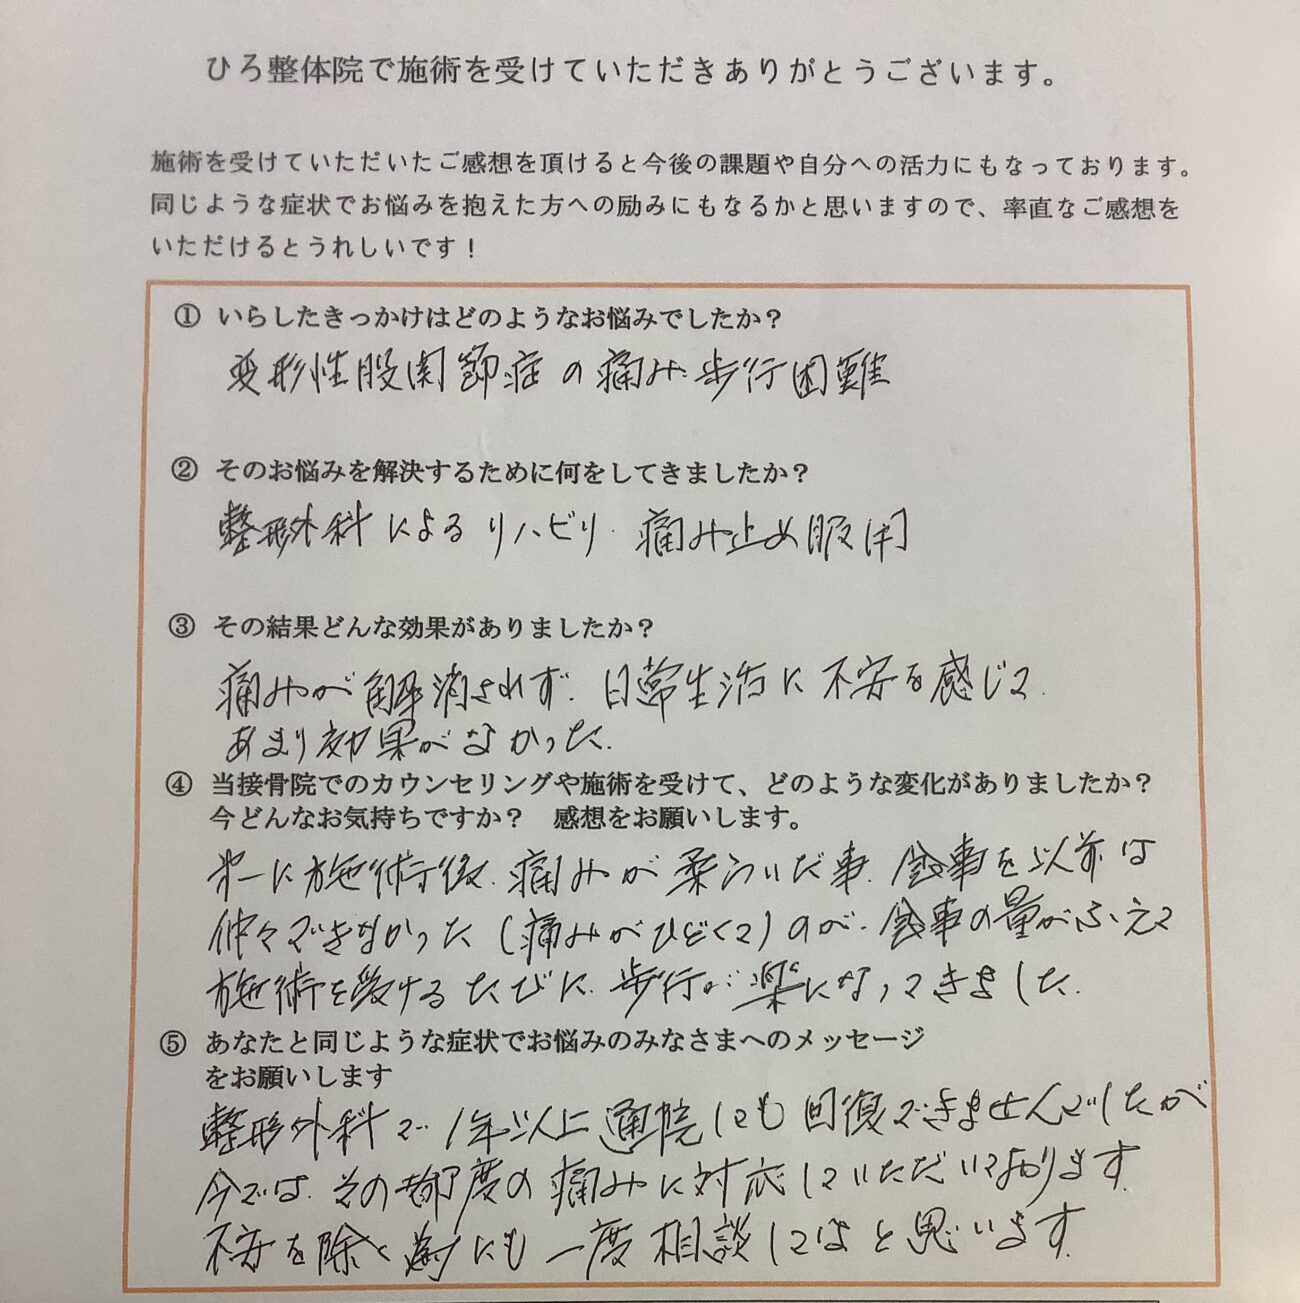 ひろ整体院で施術を受けていただきありがとうございます。
施術を受けていただいたご感想を頂けると今後の課題や自分への活力にもなっております。
同じような症状でお悩みを抱えた方への励みにもなるかと思いますので、率直なご感想を
いただけるとうれしいです！
① いらしたきっかけはどのようなお悩みでしたか？
変形性股関節症の痛み 歩行困難
② そのお悩みを解決するために何をしてきましたか？
整形外科によるリハビリ 痛み止め服用
③ その結果どんな効果がありましたか？
痛みが解消されず、日常生活に不安を感じて、
あまり効果がなかった。
④ 当接骨院でのカウンセリングや施術を受けて、どのような変化がありましたか？
今どんなお気持ちですか？　感想をお願いします。
第一に施術後、痛みが柔らいだ事、食事を以前は
仲々できなかった（痛みがひどくて）のが、食事の量がふえて
施術を受けるたびに、歩行が楽になってきました。
⑤ あなたと同じような症状でお悩みのみなさまへのメッセージ
をお願いします
整形外科で1年以上通院しても回復できませんでしたが
今では、その都度の痛みに対応していただいております。
不安を除く為にも一度相談してはと思います。